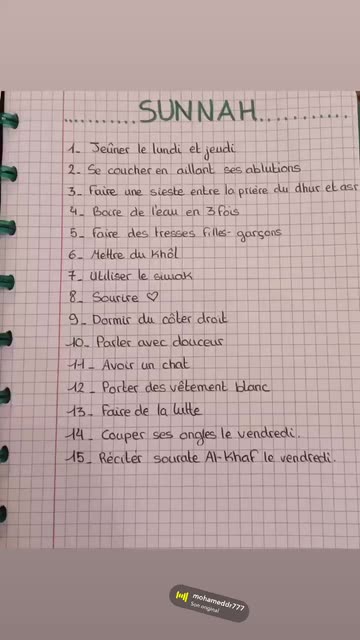 ..........SUNNAH............
1_ Jeûner le lundi et jeudi
2_ Se coucher en aillant ses ablutions
3_ Faire une sieste entre la prière du dhur et asr
4_ Boire de l'eau en 3 fois
5_ Faire des tresses filles-garçons
6_ Mettre du Khôl
7_ Utiliser le siwak
8_ Sourire ♡
9_ Dormir du côter droit
10_ Parler avec douceur
11_ Avoir un chat
12_ Porter des vêtement blanc
13_ Faire de la lutte
14_ Couper ses ongles le vendredi.
15_ Réciter sourate Al-Khaf le vendredi.
mohameddr777
Son original